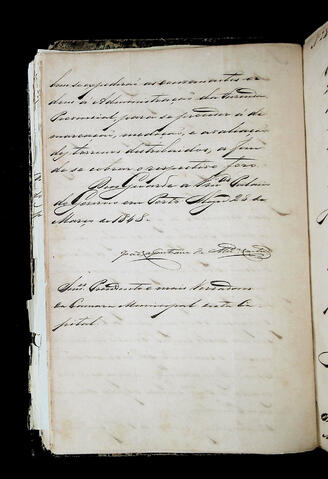 bem se expedirão as convenientes or
dens á Administração da Fazenda
Provincial para se proceder á de
marcação, medição, e avaliação
de terrenos distribuidos, a fim
de se cobrar o respectivo foro.
Deos Guarde a Vm.ces Palacio
do Governo em Porto Alegre 28 de
Março de 1848.
Snr.s Presidente e mais Vereadores
da Camara Municipal desta Ca
pital